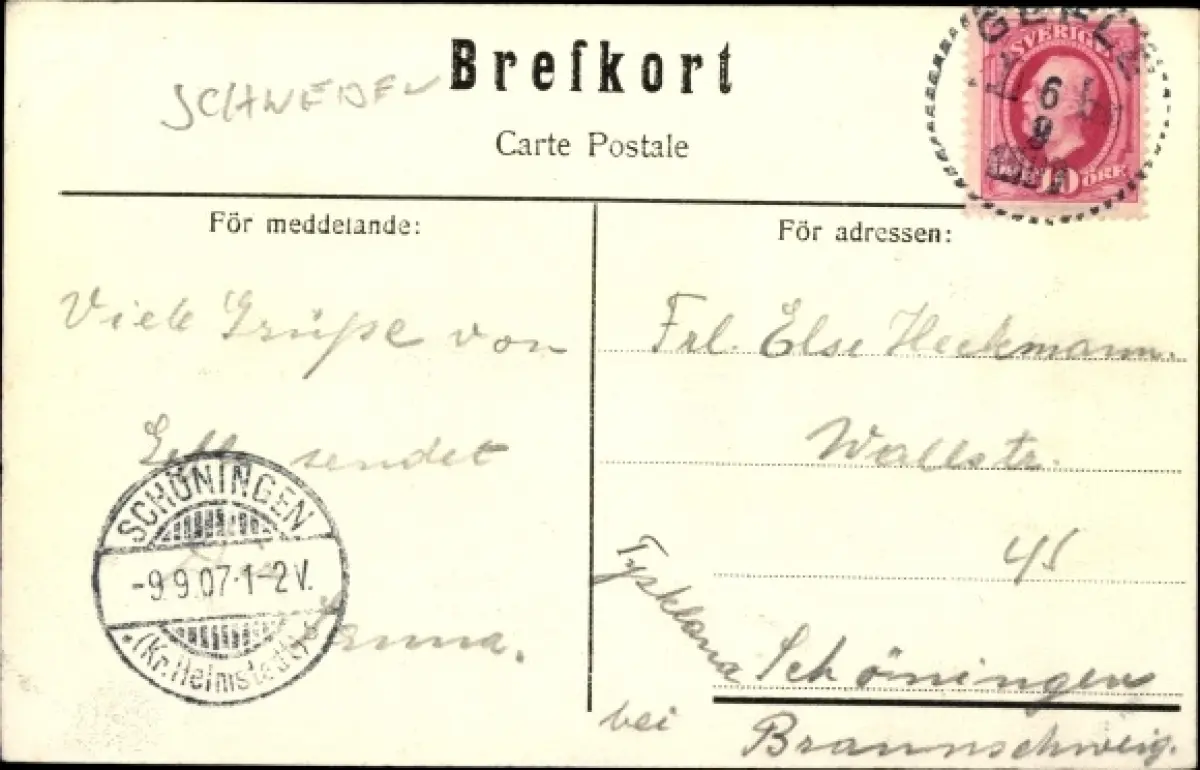 SCHWEDEN
Brefkort
Carte Postale
GEFLE
SVERIGE
6 9
10 ÖRE
För meddelande:
För adressen:
Viele Grüße von
sendet
SCHÖNINGEN
-9.9.07·1-2V.
(Kr. Helmstedt)
Frl. Else Heckmann.
Wallstr.
45
Tyskland
Schöningen
bei
Braunschweig.